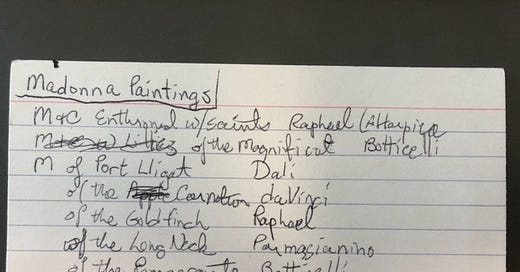 Madonna Paintings
M+C Enthroned w/Saints Raphael (Altarpiece
of the Magnificat Botticelli
M of Port Lligat Dali
of the Carnation daVinci
of the Goldfinch Raphael
of the Long Neck Parmagianino
of the Botticelli